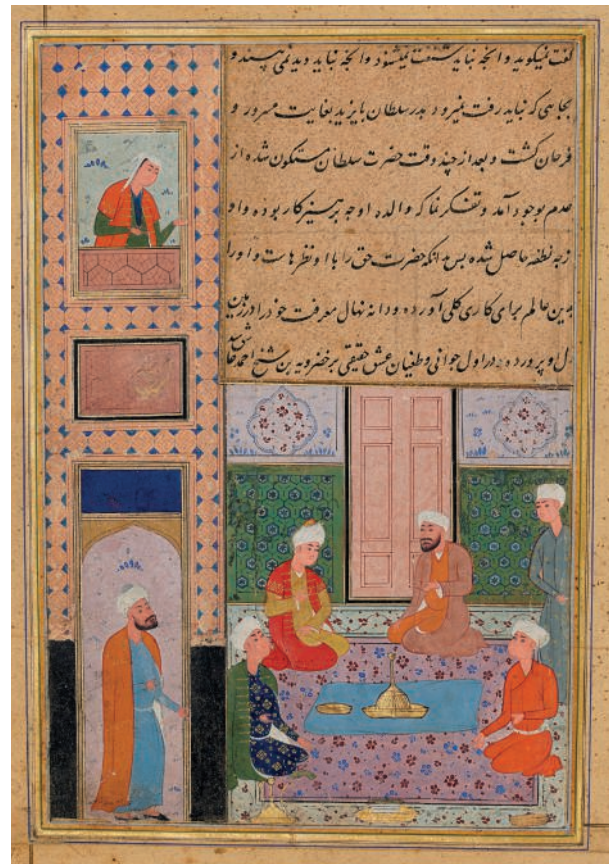 گفت نمیکوید و انچه نباید شنفت نمیشنود و انچه نباید دید نمی بیند و
بجایی که نباید رفت نمیرود پدر سلطان بایزید بغایت مسرور و
فرحان کشت و بعد از چند وقت حضرت سلطان متکون شده از
عدم بوجود آمد و تفکر نما که والده او چه پرهیزکار بوده و او
از چه نطفه حاصل شده پس بدانکه حضرت حق را با او نظرهاست و او را
بدین عالم برای کاری کلی آورده و دانه نهال معرفت خود را در زمین
دل او پرورده در اول جوانی و طغیان عشق حقیقی بر خضرویه بن شیخ احمد